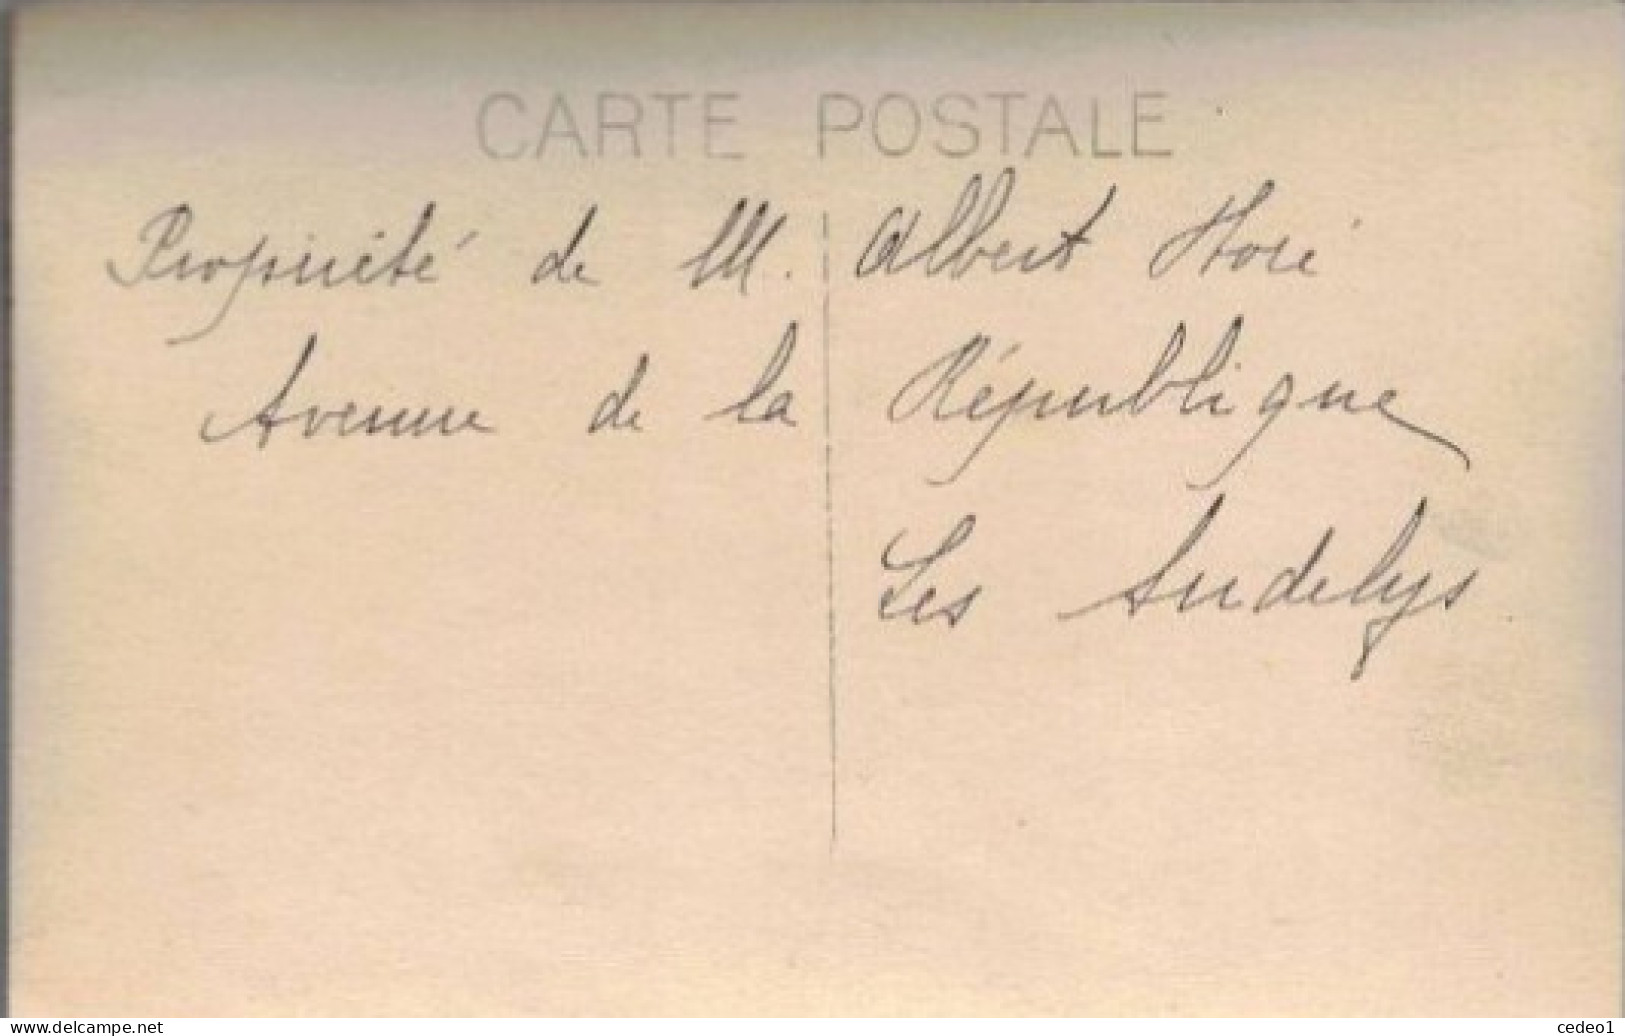 CARTE POSTALE
Propriété de M. Albert Horé
Avenue de la République
Les Andelys
delcampe.net
cedeo1